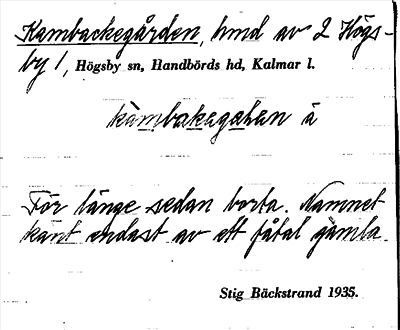 Kambackegården, hmd av 2 Högs-
by 1, Högsby sn, Handbörds hd, Kalmar l.
kàmbakegaḷən ä
För länge sedan borta. Namnet
känt endast av ett fåtal gamla.
Stig Bäckstrand 1935.